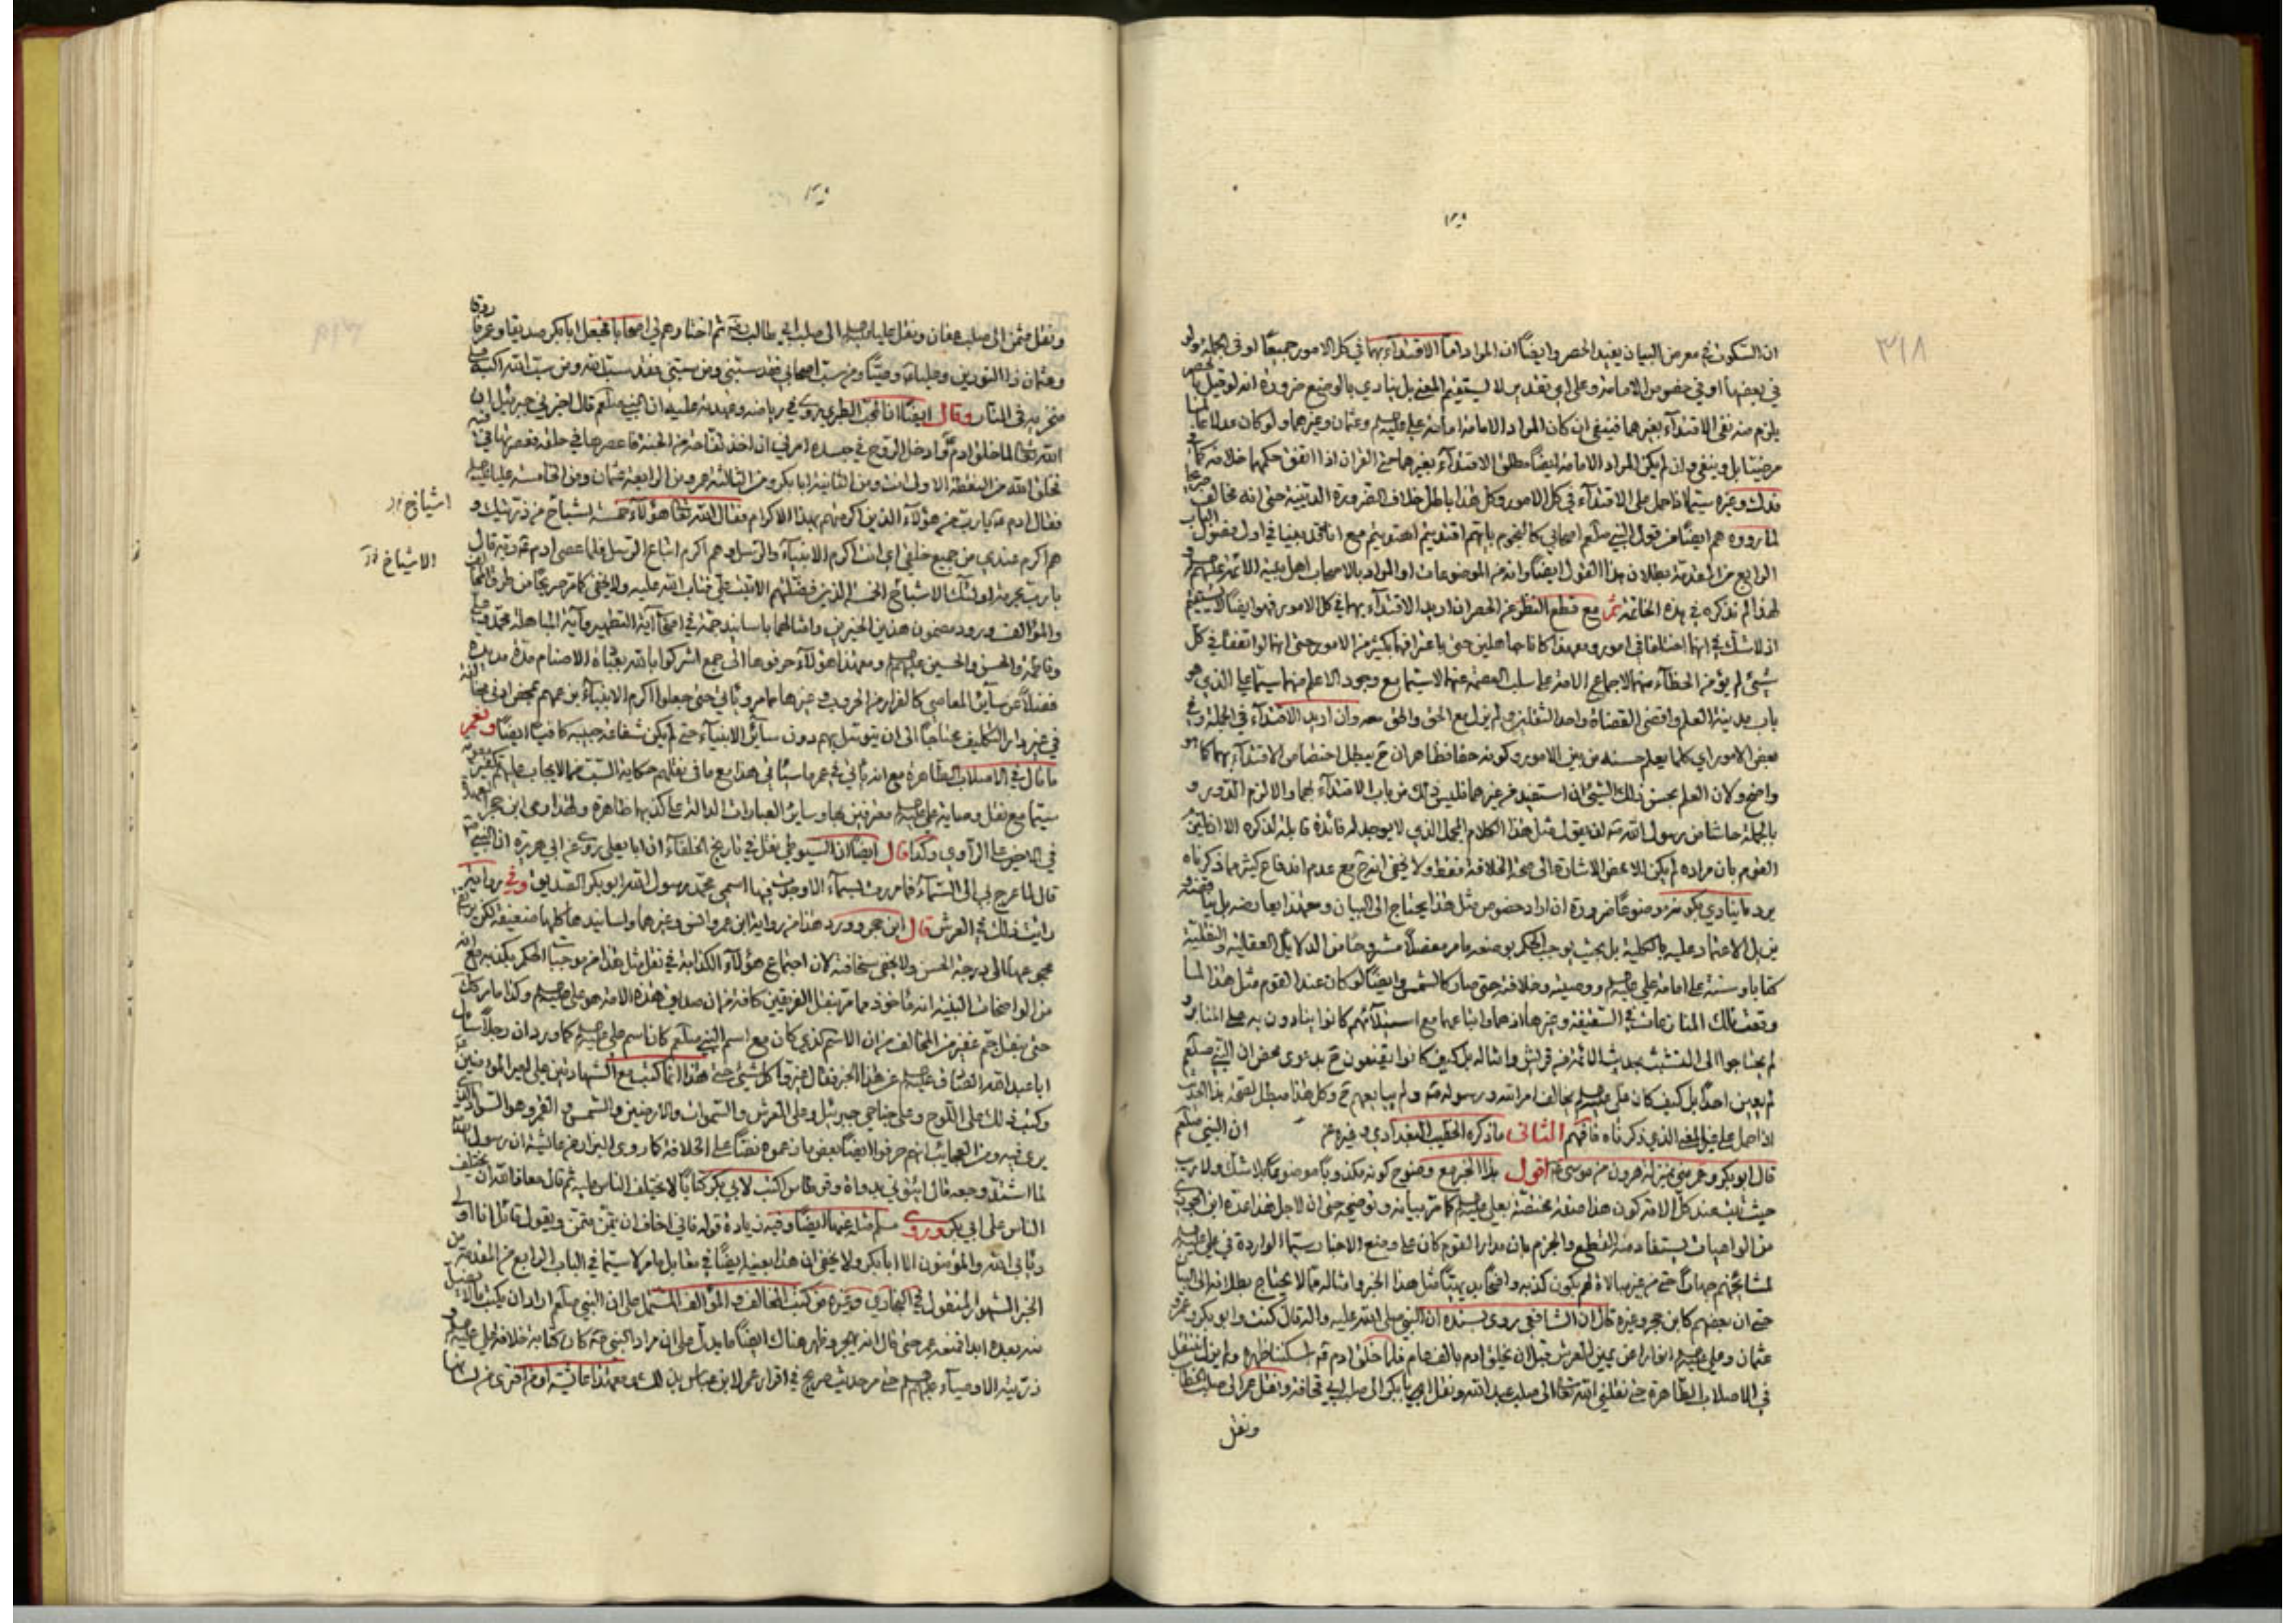 ٣١٨
ان السكوت في معرض البيان يفيد الحصر وايضًا ان المراد اما الاقتداء بهما في كل الامور جميعًا او في الجملة ولو
في بعضها او في خصوص الامامة وعلى اي تقدير لا يستقيم المعنى بل ينادي بالوضع ضرورة انه لو قيل
يلزم منه نفي الاقتداء بغيرهما فينفي ان كان المراد الامامة امامة علي وعثمان وغيرهما ولو كان عدلا عالما
مرضيا بل وينفي وان لم يكن المراد الامامة ايضًا مطلق الاقتداء بغيرهما حتى القران اذا اتفق حكمهما خلافه كما في
فدك وغيره سيما اذا حمل على الاقتداء في كل الامور وكل هذا باطل خلاف الضرورة الدينية حتى انه مخالف
لما رووه هم ايضًا من قول النبي صلعم اصحابي كالنجوم بايهم اقتديتم اهتديتم مع انا قد بينا في اول الباب
الرابع من المقدمة بطلان هذا القول ايضًا وانه من الموضوعات او المراد بالاصحاب اهل بيته الائمة
لهذا لم نذكره في هذه الخاتمة ثم مع قطع النظر عن الحصر ان اريد الاقتداء بهما في كل الامور فهو ايضًا لا يستقيم
اذ لا شك في انهما اختلفا في امور ومع هذا كانا جاهلين حتى باعترافهما بكثير من الامور حتى انهما لو اتفقا في كل
شيء لم يؤمن الخطاء منهما لاجماع الامة على سلب العصمة عنهما لا سيما مع وجود الاعلم منهما سيما علي الذي هو
باب مدينة العلم واقضى القضاة واحد الثقلين ولم يزل مع الحق والحق معه وان اريد الاقتداء في الجملة وفي
بعض الامور اي كلما يعلم حسنه من بين الامور وكونه حقا فظاهر ان ح يبطل اختصاص الاقتداء بهما كما هو
واضح ولان العلم بحسن ذلك الشيء ان استفيد من غيرهما فليس ذلك من باب الاقتداء بهما والا لزم الدور و
بالجملة حاشا من رسول الله ان يقول مثل هذا الكلام المجمل الذي لا يوجد له فائدة قابلة لذكره الا
القوم بان مراده لم يكن الا محض الاشارة الى صحة الخلافة فقط ولا يخفى انه ح مع عدم اندفاع كثير مما ذكرناه
يرد ما ينادي بكونه موضوعًا ضرورة ان ارادة خصوص مثل هذا يحتاج الى البيان
بل الاعتماد عليه بالكلية بل بحيث يوجب الحكم بوضعه ما مر مفصلا مشروحًا من الدلائل العقلية والنقلية
كتابا وسنة على امامة علي ووصيته وخلافته حتى صار كالشمس وايضًا لو كان عند القوم مثل هذا لما
وقعت تلك المنازعات في السقيفة وغيرها اذ هما واتباعهما مع استيلائهم كانوا ينادون به على المنابر و
لم يحتاجوا الى التشبث بحديث الائمة من قريش وامثاله بل كيف كانوا يقنعون ح بدعوى محض ان النبي صلعم
لم يعين احدًا بل كيف كان علي يخالف امر الله ورسوله ولم يبايعهم ح وكل هذا مبطل لصحة هذا الحديث
اذا حمل على غير المعنى الذي ذكرناه فافهم الثانى ما ذكره الخطيب البغدادي وغيره عن ان النبي صلعم
قال ابو بكر وعمر مني بمنزلة هرون من موسى اقول هذا الخبر مع وضوح كونه مكذوبًا موضوعًا بلا شك ولا ريب
حيث ثبت عند كل الامة كون هذا صفة مختصة بعلي كما مر بيانه وتوضيحه حتى ان لاجل هذا عده ابن الجوزي
من الواهيات يستفاد منه القطع والجزم بان مدار القوم كان على وضع الاخبار سيما الواردة في علي
لمشايخهم جهارًا حتى من غير مبالاة لهم بكون كذبه واضحًا بديهيًا مثل هذا الخبر وامثاله مما لا يحتاج بطلانه الى البيان
حتى ان بعضهم كابن حجر وغيره قال ان الشافعي روى بسنده ان النبي صلى الله عليه واله قال كنت وابو بكر وعمر و
عثمان وعلي انوارا عن يمين العرش قبل ان يخلق ادم بالف عام فلما خلق ادم اسكننا ظهره ولم يزل ننتقل
في الاصلاب الطاهرة حتى نقلني الله تعالى الى صلب عبد الله ونقل ابا بكر الى صلب ابي قحافة ونقل عمر الى صلب الخطاب
ونقل
ونقل عثمن الى صلب عفان ونقل عليا الى صلب ابي طالب ثم اختارهم لي اصحابا فجعل ابا بكر صديقا وعمر فاروقا
وعثمان ذا النورين وعليا وصيًا ومن سب اصحابي فقد سبني ومن سبني فقد سب الله ومن سب الله اكبه
منخريه في النار وقال ايضًا ان المحب الطبري روى في رياضه وعهدته عليه ان النبي صلعم قال اخبرني جبرئيل ان
الله تعالى لما خلق ادم وادخل الروح في جسده امرني ان اخذ تفاحة من الجنة فاعصرها في حلقه فعصرتها في فيه
فخلق الله من النقطة الاولى انت ومن الثانية ابا بكر ومن الثالثة عمر ومن الرابعة عثمان ومن الخامسة عليا
فقال ادم يا رب من هؤلاء الذين اكرمتهم بهذا الاكرام فقال الله تعالى هؤلاء خمسة اشياخ من ذريتك و
هم اكرم عندي من جميع خلقي اي انت اكرم الانبياء والرسل وهم اكرم اتباع الرسل فلما عصى ادم ربه قال
يا رب بحرمة اولئك الاشياخ الخمسة الذين فضلتهم الا تبت علي فتاب الله عليه ولا يخفى كما مر صريحًا من طرق المخالف
والمؤالف ورود مضمون هذين الخبرين وامثالهما باسانيد جمة في اصحاب آية التطهير وآية المباهلة محمد وعلي
وفاطمة والحسن والحسين ومع هذا هؤلاء حرفوها الى جمع اشركوا بالله بعبادة الاصنام مدة مديدة
فضلا عن سائر المعاصي كالفرار من الحروب وغيرها مما مر ويأتي حتى جعلوا اكرم الانبياء بزعمهم بمحض ادنى مخالفة
في غير دار التكليف محتاجًا الى ان يتوسل بهم دون سائر الانبياء حتى لم يكن شفاعة حبيبه كافيًا ايضًا ونعم
ما قال في الاصلاب الطاهرة مع انه يأتي في عمر ما سيأتي هذا مع ما في نقلهم حكاية السب من الايجاب عليهم
سيما مع نقل وصاية علي معرفين بها وسائر العبارات الدالة على كذبها ظاهرة ولهذا رمى ابن حجر العهدة
في الاخير على الراوي وكذا قال ايضًا ان السيوطي نقل في تاريخ الخلفاء ان ابا يعلى روى عن ابي هريرة ان النبي
قال لما عرج بي الى السماء فما مررت بسماء الا وجدت فيها اسمي محمد رسول الله ابو بكر الصديق وفي رواية
رايت ذلك في العرش قال ابن حجر وورد هذا من رواية ابن عمر وانس وغيرهما واسانيدها كلها ضعيفة لكن يرتفع
مجموعها الى درجة الحسن ولا يخفى سخافته لان اجتماع هؤلاء الكذابة في نقل مثل هذا من موجبات الحكم بكذبه مع انه
من الواضحات البينة انه مأخوذ مما مر بنقل الفريقين كافة من ان صديق هذه الامة هو علي وكذا ما مر كذلك
حتى بنقل جم غفير من المخالف من ان الاسم الذي كان مع اسم النبي صلعم كان اسم علي كما ورد ان رجلا سأل
ابا عبد الله الصادق عن هذا الخبر فقال غيروا كل شيء حتى هذا انما كتب مع الشهادتين علي امير المؤمنين
وكتب ذلك على اللوح وعلى جناحي جبرئيل وعلى العرش والسموات والارضين والشمس والقمر وهو السواد الذي
يرى فيه ومن العجايب انهم حرفوا ايضًا بعض ما زعموه نصًا على الخلافة كما روى البزار عن عائشة ان رسول الله
لما اشتد وجعه قال ائتوني بدواة وقرطاس اكتب لابي بكر كتابًا لا يختلف الناس عليه ثم قال معاذ الله ان يختلف
الناس على ابي بكر وروى مسلم مثله عنها ايضًا وفيه زيادة قوله فاني اخاف ان يتمنى متمن ويقول قائل انا اولى
ويأبى الله والمؤمنون الا ابا بكر ولا يخفى ان هذا بعينه ايضًا في مقابل ما مر لا سيما في الباب الرابع من المقدمة من
الخبر المشهور المنقول في البخاري وغيره من كتب المخالف والمؤالف المشتمل على ان النبي صلعم اراد ان يكتب ما لا يضل
بعده ابدا فمنعه عمر حتى قال انه ليهجر وظهر هناك ايضًا ما يدل على ان مراد النبي كان كتابة خلافة علي و
ذريته الاوصياء حتى مر حديث صريح في اقرار عمر لابن عباس بذلك ومع هذا عائشة او من افترى من لسانها
اشياخ
الاشياخ